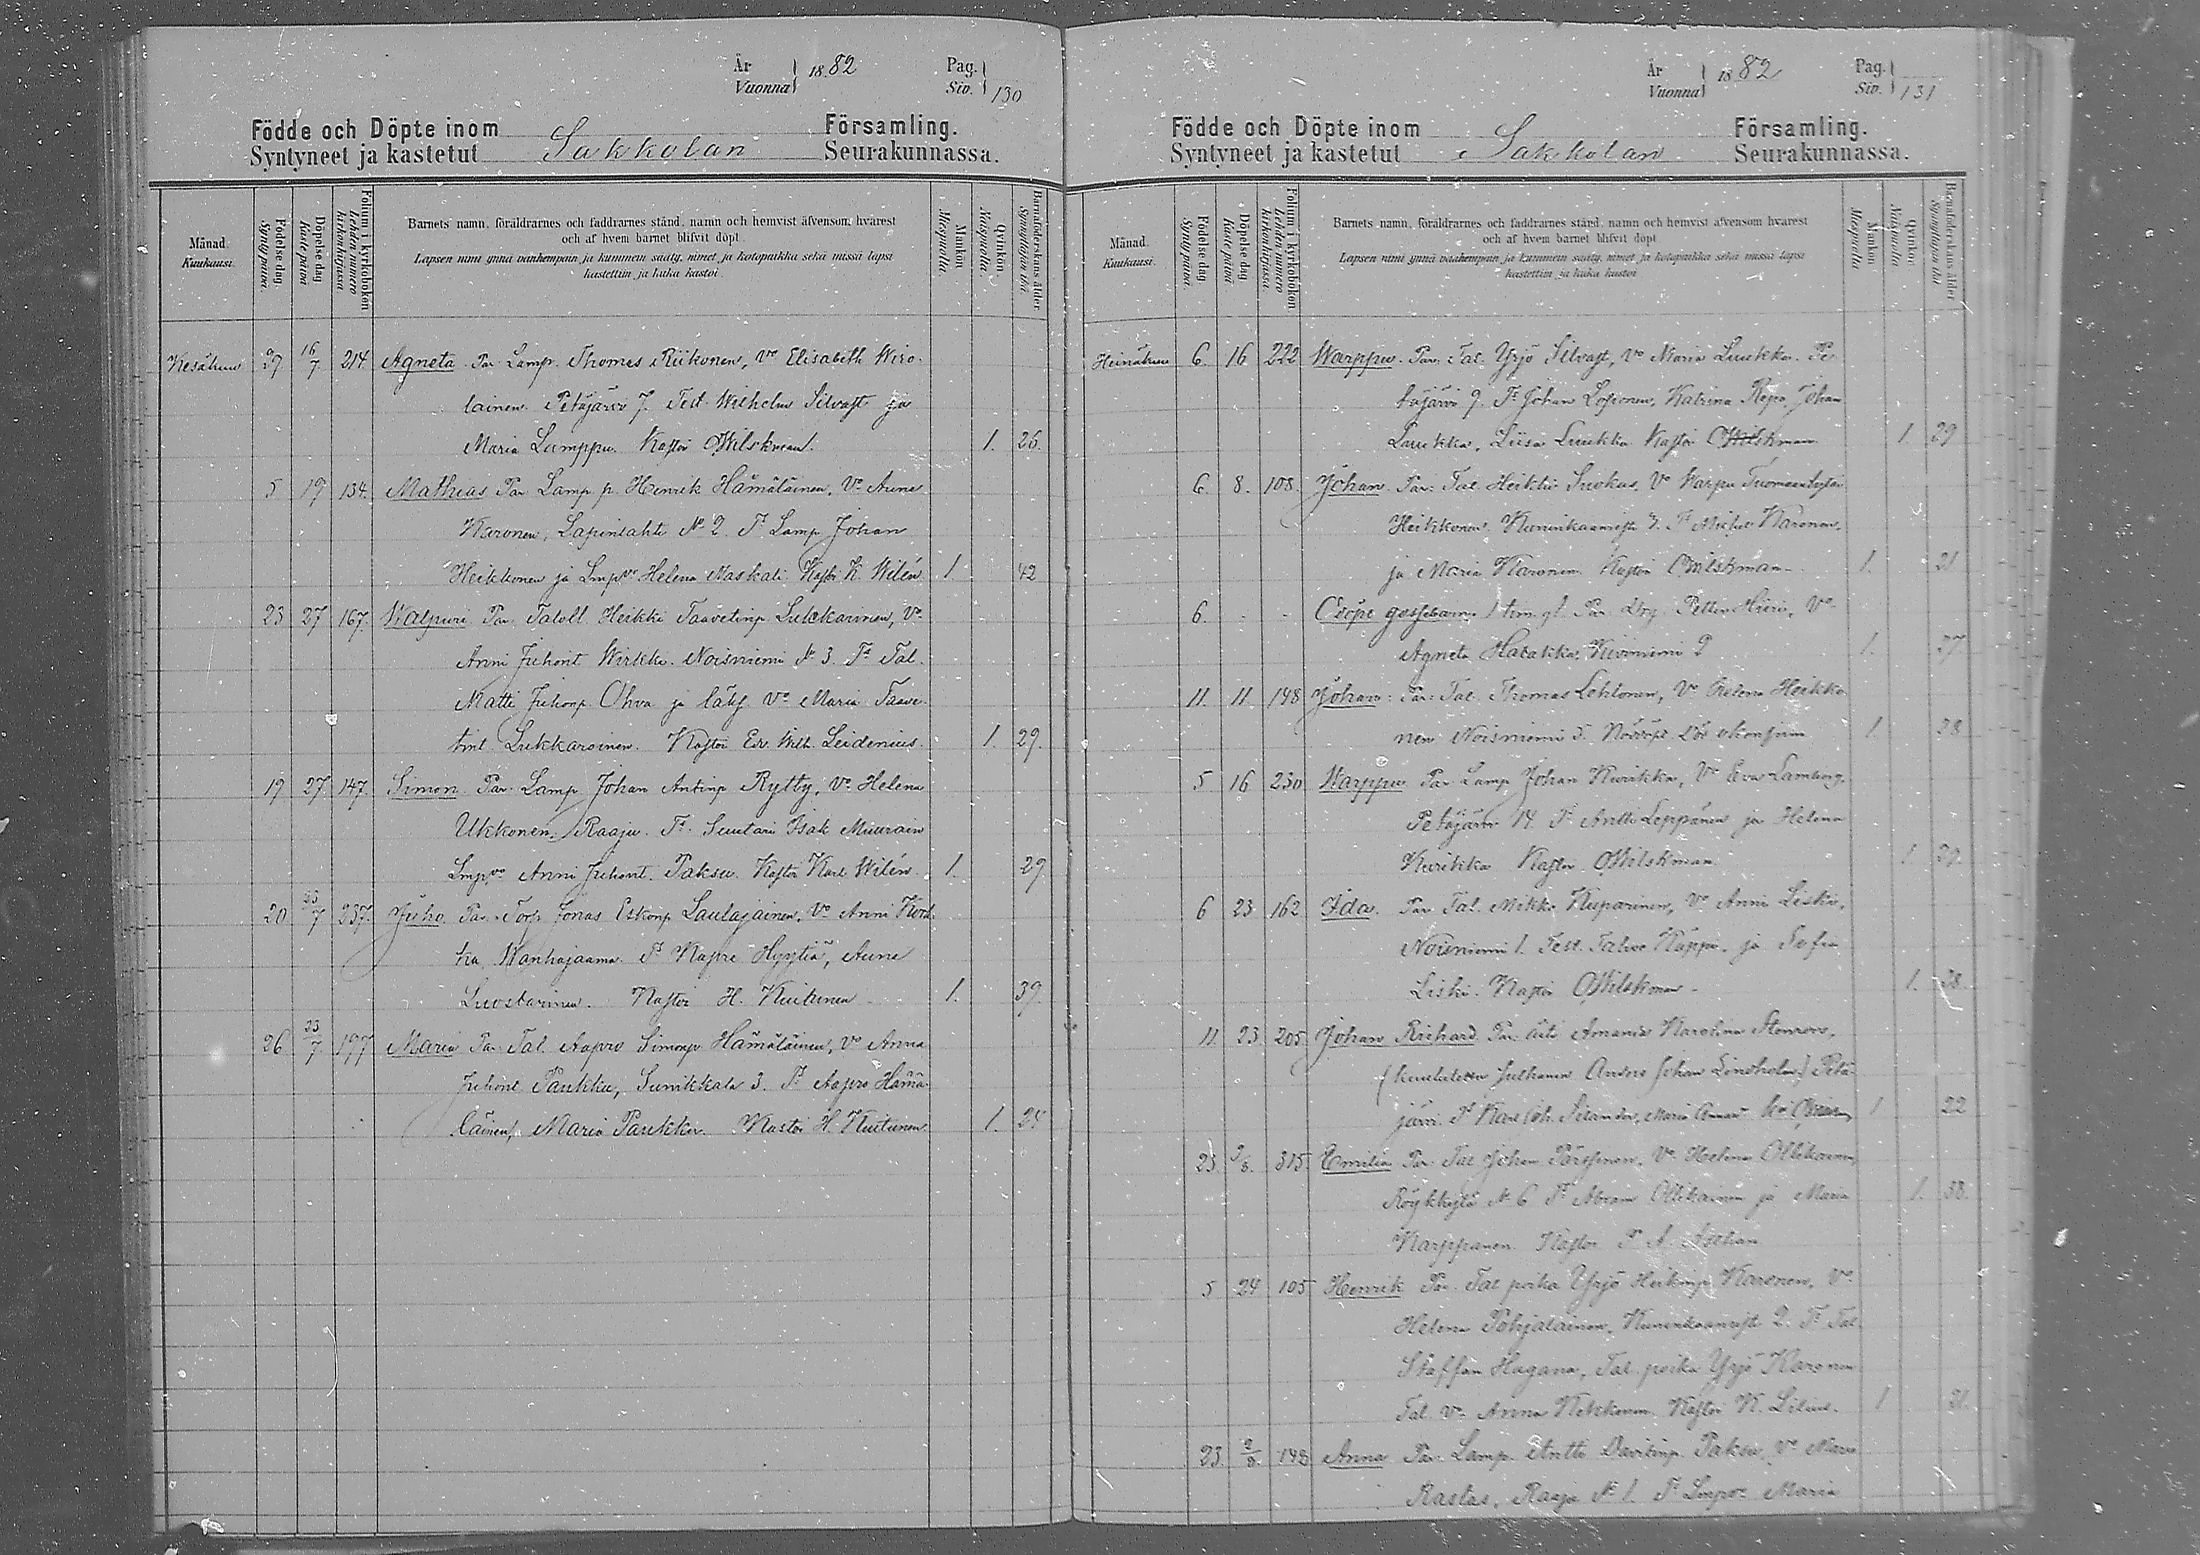 År 1882 Pag.
Vuonna Siv. 130
Födde och Döpte inom Sakkolan Församling.
Syntyneet ja kastetut Seurakunnassa.
Månad. Kuukausi.
Födelse dag. Syntypäivä.
Döpelse dag Kastepäivä
Folium i kyrkoboken Lehden numero kirkonkirjassa
Barnets namn, föräldrarnes och faddrarnes stånd, namn och hemvist äfvensom, hvarest
och af hvem barnet blifvit döpt.
Lapsen nimi ynnä vanhempain ja kummein sääty, nimet ja kotopaikka sekä missä lapsi
kastettiin ja kuka kastoi.
Mankön Miespuolia.
Qvinkön Naispuolia.
Barnaföderskans ålder
Kesäkuu 29 16/7 214. Agneta. Par Lamp. Thomas Riikonen, Vo Elisabeth Wiro-
lainen Petäjärvi 7. Test. Wilhelm Silvast ja
Maria Lumppu. Kastoi OWilskman. 1. 26.
5 19 134. Mathias Par Lamp p. Henrik Hämäläinen, Vo Anna
Karonen, Lapinlahti No 2. Ts Lamp Johan
Heikkonen ja Lmpvo Helena Naskali Kastoi K. Wilén 1 42
23 27 167. Walpuri Par Taloll. Heikki Taavetinp Lukkarinen, Vo
Anni Juhont Wirkki. Noisniemi No 3. Ts Tal.
Matti Juhonp Ohva ja lätj Vo Maria Taave-
tint Lukkaroinen. Kastoi Edv. Wilh. Leidenius. 1. 29.
19 27 147. Simon Par. Lamp. Johan Antinp Rytty, Vo Helena
Ukkonen, Raaju. Ts. Suutari Isak Muurain
Lmpvo Anni Juhont. Paksu. Kastoi Karl Wilén. 1. 29
20 23/7 237. Juho. Par. Torp. Jonas Eskonp Laulajainen, Vo Anni
Wanhajaama. Ts Kapre Hyytiä, Anna
Luostarinen. Kastoi H. Kiutunen 1. 39.
26 23/7 197 Maria Par Tal. Aapro Simonp Hämäläinen, Vo Anna
Juhont Paukku, Sunikkala 3. Ts Aapro Hämä-
läinen, Maria Paukku. Kastoi H. Kiutunen 1. 24
År 1882 Pag.
Vuonna Siv. 131
Födde och Döpte inom Sakkolan Församling.
Syntyneet ja kastetut Seurakunnassa.
Månad. Kuukausi.
Födelse dag Syntypäivä.
Döpelse dag Kastepäivä
Folium i kyrkoboken Lehden numero kirkonkirjassa.
Barnets namn, föräldrarnes och faddrarnes stånd, namn och hemvist äfvensom hvarest
och af hvem barnet blifvit döpt.
Lapsen nimi ynnä vanhempain ja kummein sääty, nimet ja kotopaikka sekä missä lapsi
kastettiin ja kuka kastoi.
Mankön Miespuolia
Qvinkön Naispuolia.
Barnaföderskans ålder
Heinäkuu 6. 16 222 Warppu. Par. Tal. Yrjö Silvast, Vo Maria Luukka. Pe-
täjärvi 9. Ts Johan Loponen, Katrina Repo, Johan
Luukka, Liisa Luukka Kastoi OWilskman 1. 29
6. 8. 108. Johan Par. Tal. Heikki Suokas, Vo Warpu Tuomaantytär
Heikkonen. Ts Karonen,
ja Maria Karonen Kastoi OWilskman. 1. 21
6. - - Odöpt gossebarn Par. Petter Hiiri, Vo
Agneta Hatakka, Kiviniemi 2 1. 37
11. 11. 148 Johan: Par: Tal. Thomas Lehtonen, Vo Helena Heikko-
nen Noisniemi 5. Nöddöpt 1. 28
5 16 230 Warppu Par Lamp Johan Kurikka, Vo Eva Lamberg.
Petäjärvi 14. Ts Antti Leppänen ja Helena
Kurikka Kastoi OWilskman. 1. 29.
6 23 162 Ida. Par Tal. Mikko Kuparinen, Vo Anni Liski,
Noisniemi 1. Test. Käppi. ja Sofia
Liski. Kastoi OWilskman. 1. 38.
11. 23. 205. Johan Richard Par. äiti Amanda Karolina Stenroos,
Johan Lindholm) Petä-
järvi. Ts Karl Joh. Maria 1 22
23 2/8. 315. Emilia Par Tal Johan Pärssinen, Vo Helena Ollikainen,
Röykkylä No 6 Ts Abram Ollikainen ja Maria 1. 38.
Karppanen. Kastoi
5 24 105 Henrik Par. Tal poika Yrjö Heikinp Karonen, Vo
Helena Pohjalainen, 2. Ts Tal
Staffan Hagana, Tal. poika Yrjö Karonen
Tal. Vo Anna Kekkonen Kastoi K. Lilius. 1 31.
23. 2/8. 148 Anna Par. Lamp. Antti Davitinp. Paksu, Vo Maria
Rastas, Raaju No 1. Ts Lmpvo Maria